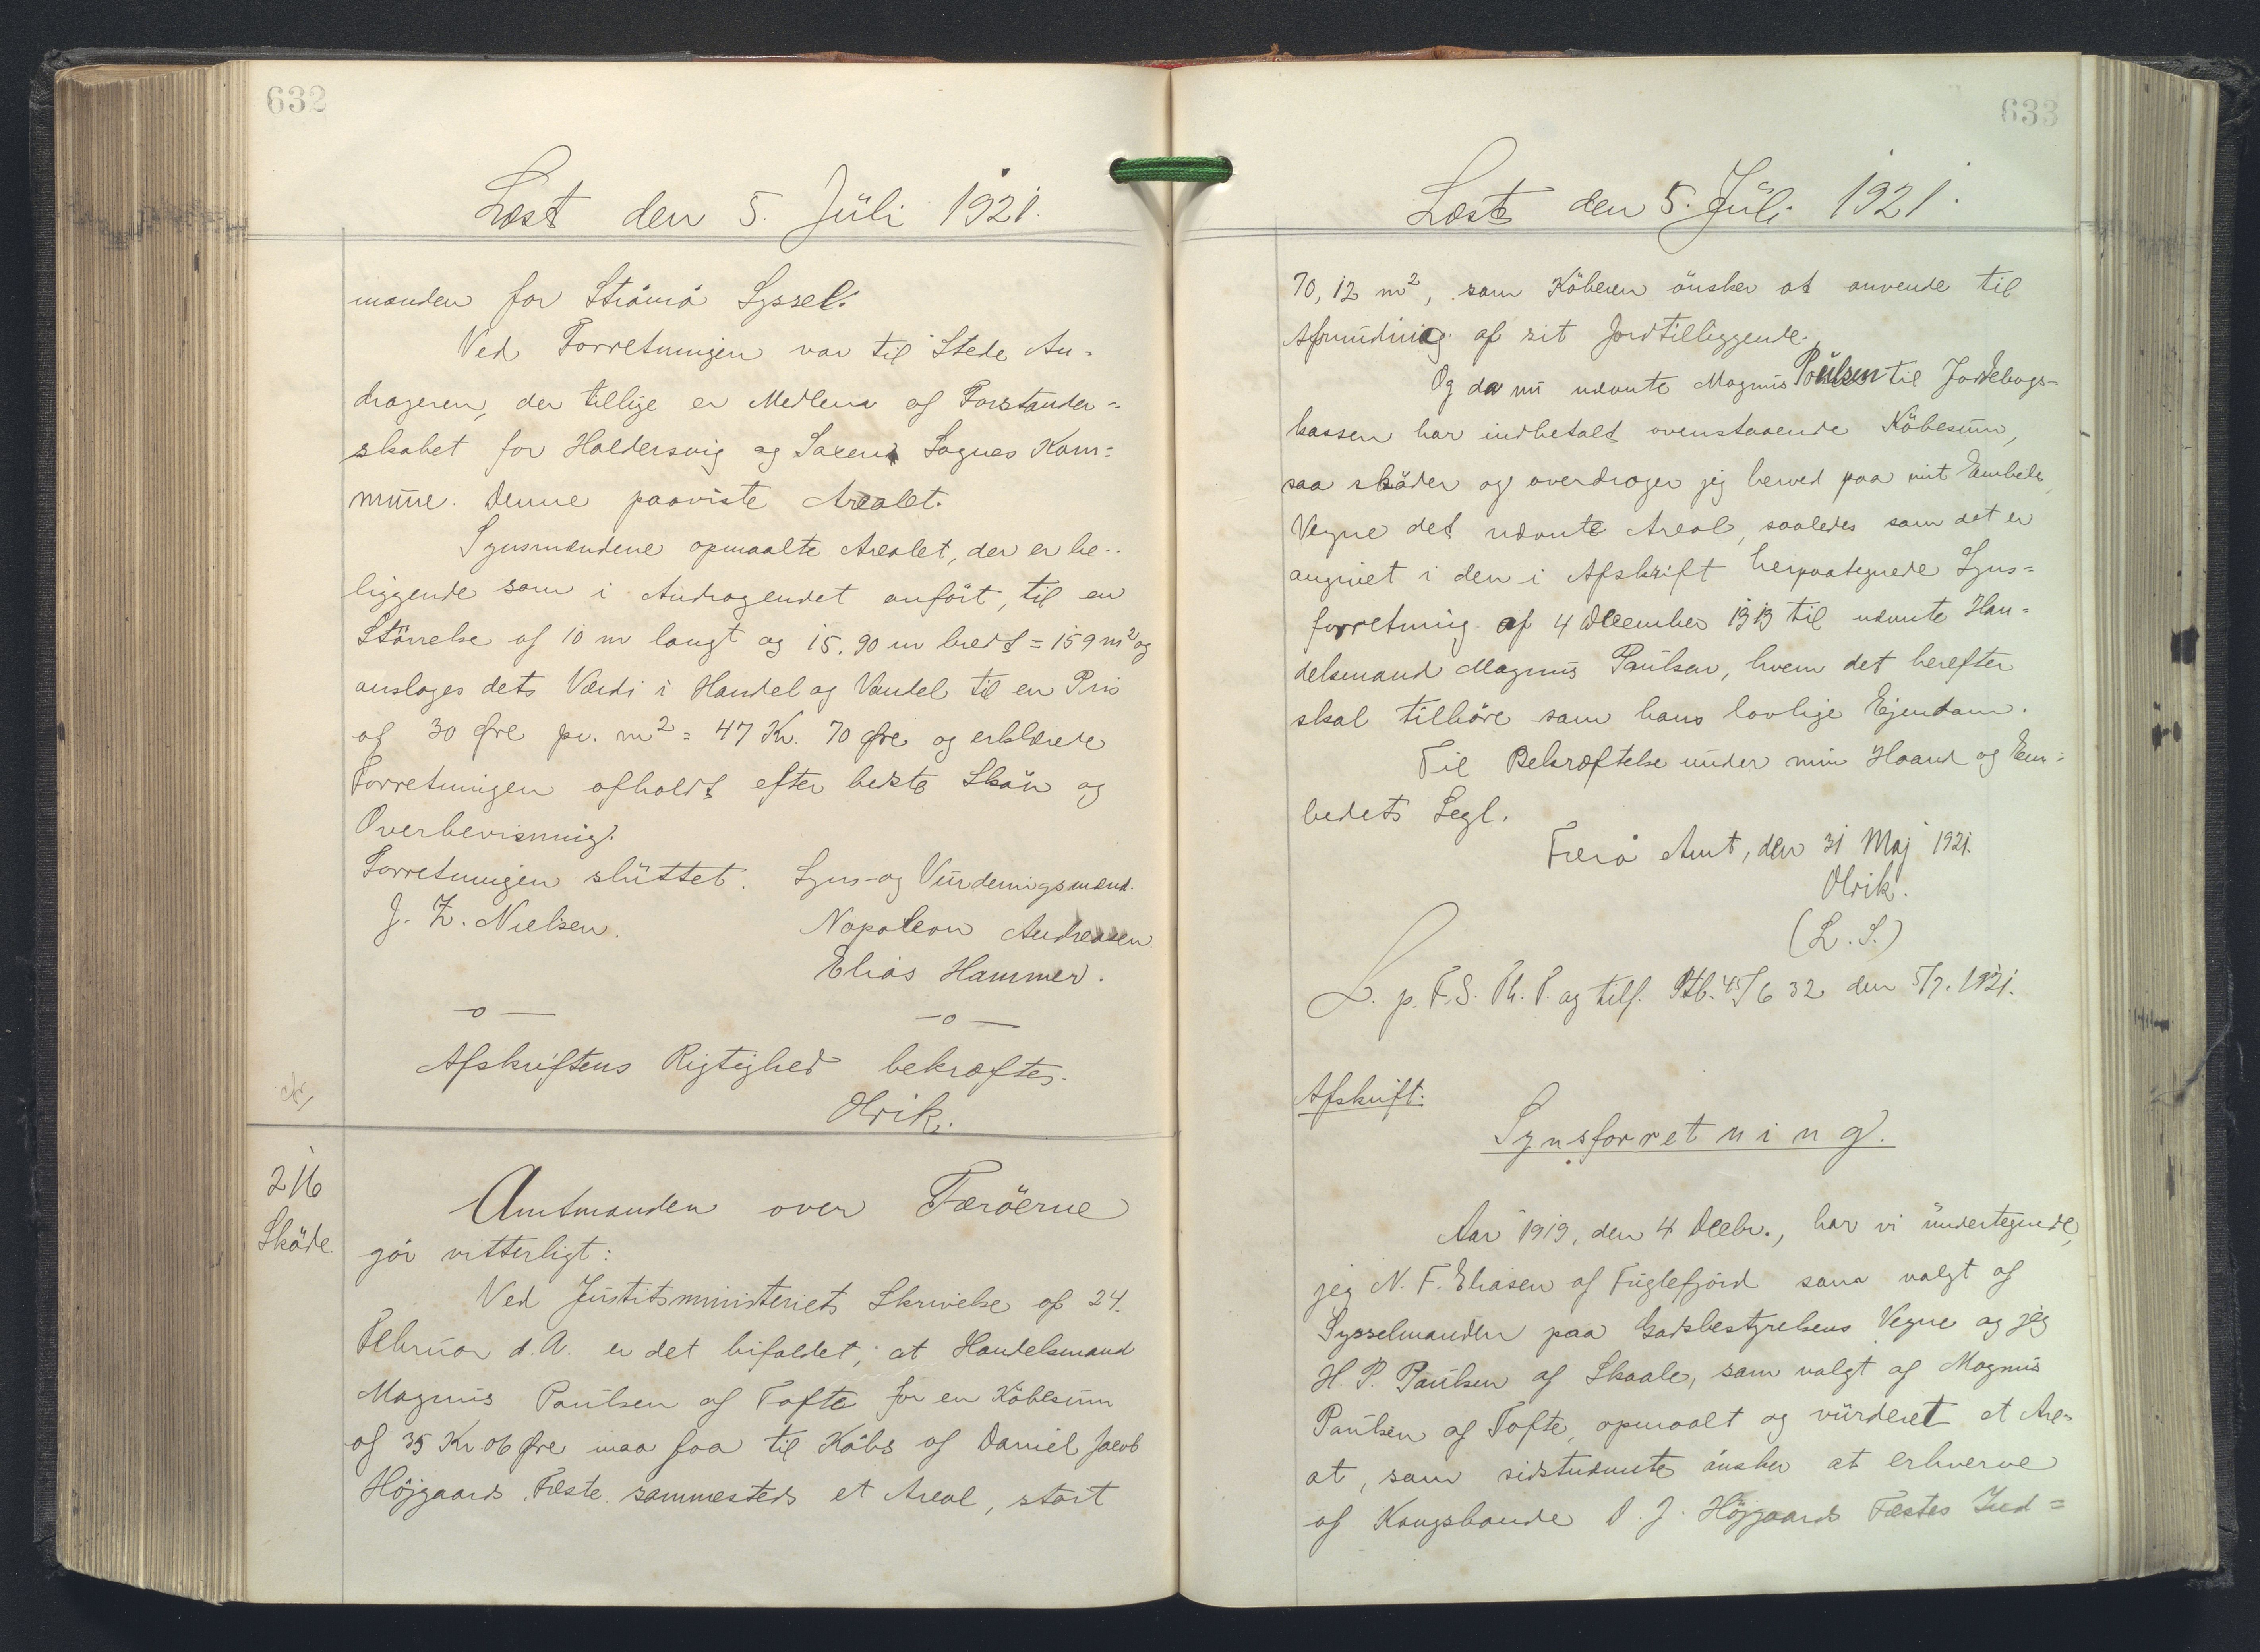 632
Læst den 5. Jüli 1921.
manden for Strömö Syssel.
Ved Forretningen var til Stede An-
drageren, der tillige er Medlem af Forstander-
skabet for Haldersvig og Saxens Sognes Kom-
mune. Denne paaviste Arealet.
Synsmændene opmaalte Arealet, der er be-
liggende som i Andragendet anfört, til en
Störrelse af 10 m langt og 15.90 m bredt = 159 m² og
ansloges dets Værdi i Handel og Vandel til en Pris
af 30 Øre pr. m² = 47 Kr. 70 Øre og erklærede
Forretningen afholdt efter bedste Skön og
Overbevisning.
Forretningen slüttet. Syns- og Vurderingsmænd.
J. Z. Nielsen. Napoleon Andreasen.
Elias Hammer.
—o— —o—
Afskriftens Rigtighed bekræftes.
Olrik.
cfr.
216
Sköde.
Amtmanden over Færöerne
gör vitterligt:
Ved Justitsministeriets Skrivelse af 24.
Februar d.A. er det bifaldet, at Handelsmand
Magnus Paulsen af Tofte for en Köbesum
af 35 Kr. 06 Øre maa faa til Köbs af Daniel Jacob
Höjgaards Fæste sammesteds et Areal, stort
633
Læst den 5. Jüli 1921.
70,12 m², som Köberen önsker at anvende til
Afrunding af sit Jordtilliggende.
Og da nu nævnte Magnus Poulsen til Jordebogs-
kassen har indbetalt ovenstaaende Köbesum,
saa sköder og overdrager jeg herved paa mit Embeds
Vegne det nævnte Areal, saaledes som det er
angivet i den i Afskrift herpaategnede Syns-
forretning af 4 December 1919 til nævnte Han-
delsmand Magnus Paulsen, hvem det herefter
skal tilhöre som hans lovlige Ejendom.
Til Bekræftelse under min Haand og Em-
bedets Segl.
Færö Amt, den 31 Maj 1921.
Olrik.
(L.S.)
L. p. F.S. Th. P. og tilf. Ptb. 45/632 den 5/7. 1921.
Afskrift.
Synsforretning.
Aar 1919, den 4 Decbr., har vi undertegnede,
jeg N. F. Eliasen af Fuglefjord som valgt af
Sysselmanden paa Godsbestyrelsens Vegne og jeg
H. P. Paulsen af Skaale, som valgt af Magnus
Paulsen af Tofte, opmaalt og vürderet et Are-
at, som sidstnævnte önsker at erhverve
af Kongsbonde D. J. Höjgaards Fæstes Ind-